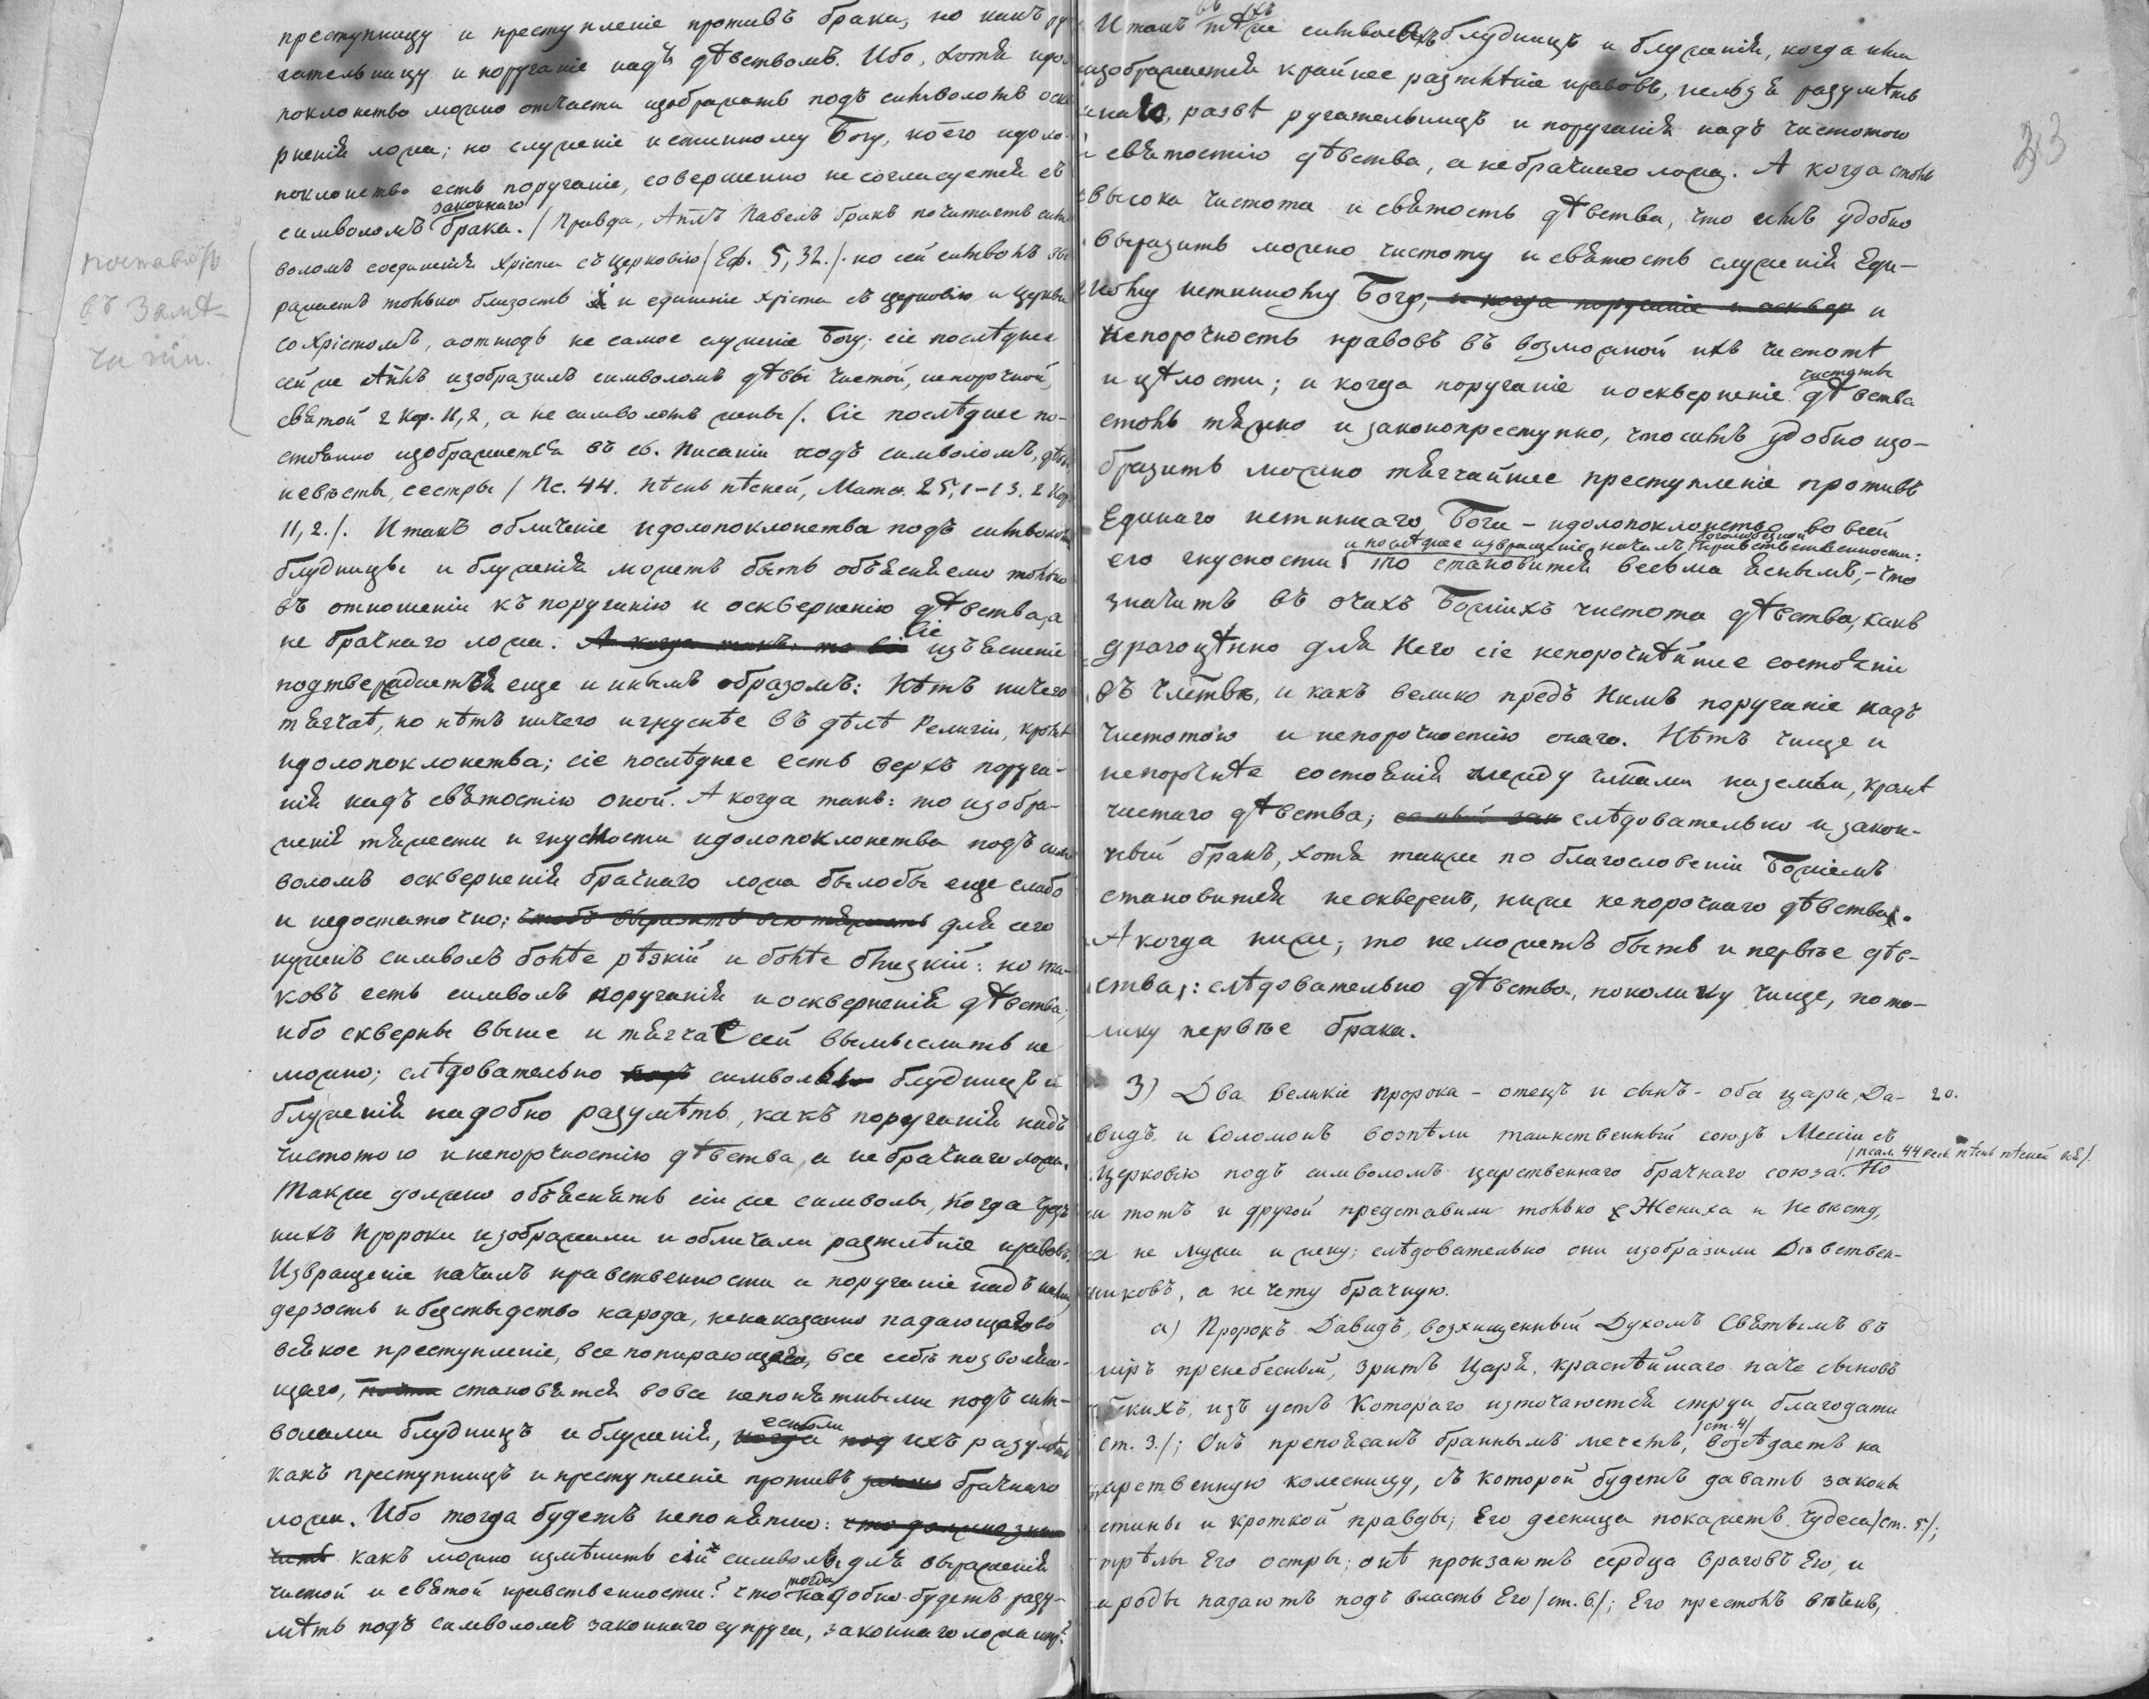 преступницу и преступленіе противъ брака, но какъ ру
гательницу и поруганіе надъ дѣвствомъ. Ибо, хотя идо
поклонство можно отчасти изображать подъ символомъ оскв
рненія ложа; но служеніе истинному Богу, коего идоло-
поклонство есть поруганіе, совершенно не согласуется съ
законнаго
символомъ брака. / Правда, Апл̃ъ Павелъ бракъ почитаетъ сим
воломъ соединенія Христа съ церковію / Еф. 5, 32. /. но сей символъ
ражаетъ только близость и единеніе Христа съ церковію и церкви
со Христомъ, а отнюдь не самое служеніе Богу; сіе послѣднее
сей же Ап̃лъ изобразилъ символомъ дѣвы чистой, непорочной,
святой 2 Кор. 11, 2, а не символомъ жены /. Сіе послѣднее по-
стоянно изображается въ св. Писаніи подъ символомъ, дѣвы
невѣсты, сестры / Пс. 44. Пѣснь пѣсней, Матѳ. 25, 1-13. 2 Кор
11, 2. /. И такъ обличеніе идолопоклонства подъ символомъ
блудницы и блуженія можетъ быть объясняемо только
въ отношеніи къ поруганію и оскверненію дѣвства, а
не брачнаго ложа. А когда такъ: то Сіе изъясненіе
подтверждается еще и инымъ образомъ: Нѣтъ ничего
тягчаѣ, но нѣтъ ничего и гнуснѣе въ дѣлѣ Религіи, кромѣ
идолопоклонства; сіе послѣднее есть верхъ поруга-
нія надъ святостію оной. А когда такъ: то изобра-
женіе тяжести и гнусности идолопоклонства подъ сим
воломъ оскверненія брачнаго ложа было бы еще слабо
и недостаточно; чтобъ выразить всю тяжесть для сего
нуженъ символъ болѣе рѣзкій и болѣе близкій: но та-
ковъ есть символъ поруганія и оскверненія дѣвства;
ибо скверны выше и тягчае сей вымыслить не
можно; слѣдовательно подъ символы блудницъ и
блуженія надобно разумѣть, какъ поруганія надъ
чистотою и непорочностію дѣвства, а не брачнаго ложа.
Также должно объяснять сіи же символы, когда чрезъ
нихъ Пророки изображали и обличали растлѣніе нравовъ,
Извращеніе началъ нравственности и поруганіе надъ ними,
дерзость и безстыдство народа, ненаказанно падающаго во
всякое преступленіе, все попирающаго, все себѣ позволяю-
щаго, становятся вовсе непонятными подъ сим-
волами блудницъ и блуженія, когда если бы под ихъ разумѣть
какъ преступницъ и преступленіе противъ брачнаго
ложа. Ибо тогда будетъ непонятно: что должно зна
чить какъ можно измѣнить сіи символы для выраженія
чистой и святой нравственности? что тогда надобно будетъ разу-
мѣть подъ символомъ законнаго супруга, законнаго ложа и пр?
поставить
въ замѣ-
чаніи.
И такъ въ тѣхъ же символахъ блудницъ и блуженія, когда ими
изображается крайнее растлѣніе нравовъ, нельзя разумѣть
инаго, развѣ ругательницъ и поруганія надъ чистотою
и святостію дѣвства, а не брачнаго ложа. А когда столь
высока чистота и святость дѣвства, что имъ удобно
выразить можно чистоту и святость служенія Еди-
ному истинному Богу, и когда поруганіе и осквер и
непорочность нравовъ въ возможной ихъ чистотѣ
и цѣлости; и когда поруганіе и оскверненіе чистоты дѣвства
столь тяжко и законопреступно, что симъ удобно изо-
бразить можно тягчайшее преступленіе противъ
Единаго истиннаго Бога - идолопоклонство во всей
и послѣднее извращеніе началъ богоподобной нравственности:
его гнусности то становится весьма яснымъ, - что
значитъ въ очахъ Божіихъ чистота дѣвства, какъ
драгоцѣнно для Него сіе непорочнѣйшее состояніе
въ чл̃вѣкѣ, и какъ велико предъ Нимъ поруганіе надъ
чистотою и непорочностію онаго. Нѣтъ чище и
непорочнѣе состоянія между чл̃ками на земли, кромѣ
чистаго дѣвства; слѣдовательно и закон-
ный бракъ, хотя также по благословенію Божіемъ
становится нескверенъ, ниже непорочнаго дѣвства.
А когда ниже; то не можетъ быть и первѣе дѣв-
ства: слѣдовательно дѣвство, поколику чище, пото-
лику первѣе брака.
3) Два великіе пророка - отецъ и сынъ - оба цари, Да- 20.
видъ и Соломонъ воспѣли таинственный союзъ Мессіи съ
/ псал. 44 весь. пѣснь пѣсней вся /
Церковію подъ символомъ царственнаго брачнаго союза. Но
и тотъ и другой представили только Жениха и Невѣсту,
а не мужа и жену; слѣдовательно они изобразили Дѣвствен-
никовъ, а не чету брачную.
а) Пророкъ Давидъ, возхищенный Духомъ Святымъ въ
міръ пренебесный, зритъ Царя, краснѣйшаго паче сыновъ
скихъ, изъ устъ Котораго источаются струи благодати
/ ст. 3. /; Онъ препоясанъ браннымъ мечемъ, / ст. 4 / возсѣдаетъ на
царственную колесницу, съ которой будетъ давать законы
истины и кроткой правды; Его десница покажетъ чудеса / ст. 5. /;
стрѣлы Его остры; онѣ пронзаютъ сердца враговъ Его, и
народы падаютъ подъ власть Его / ст. 6. /; Его престолъ вѣченъ,